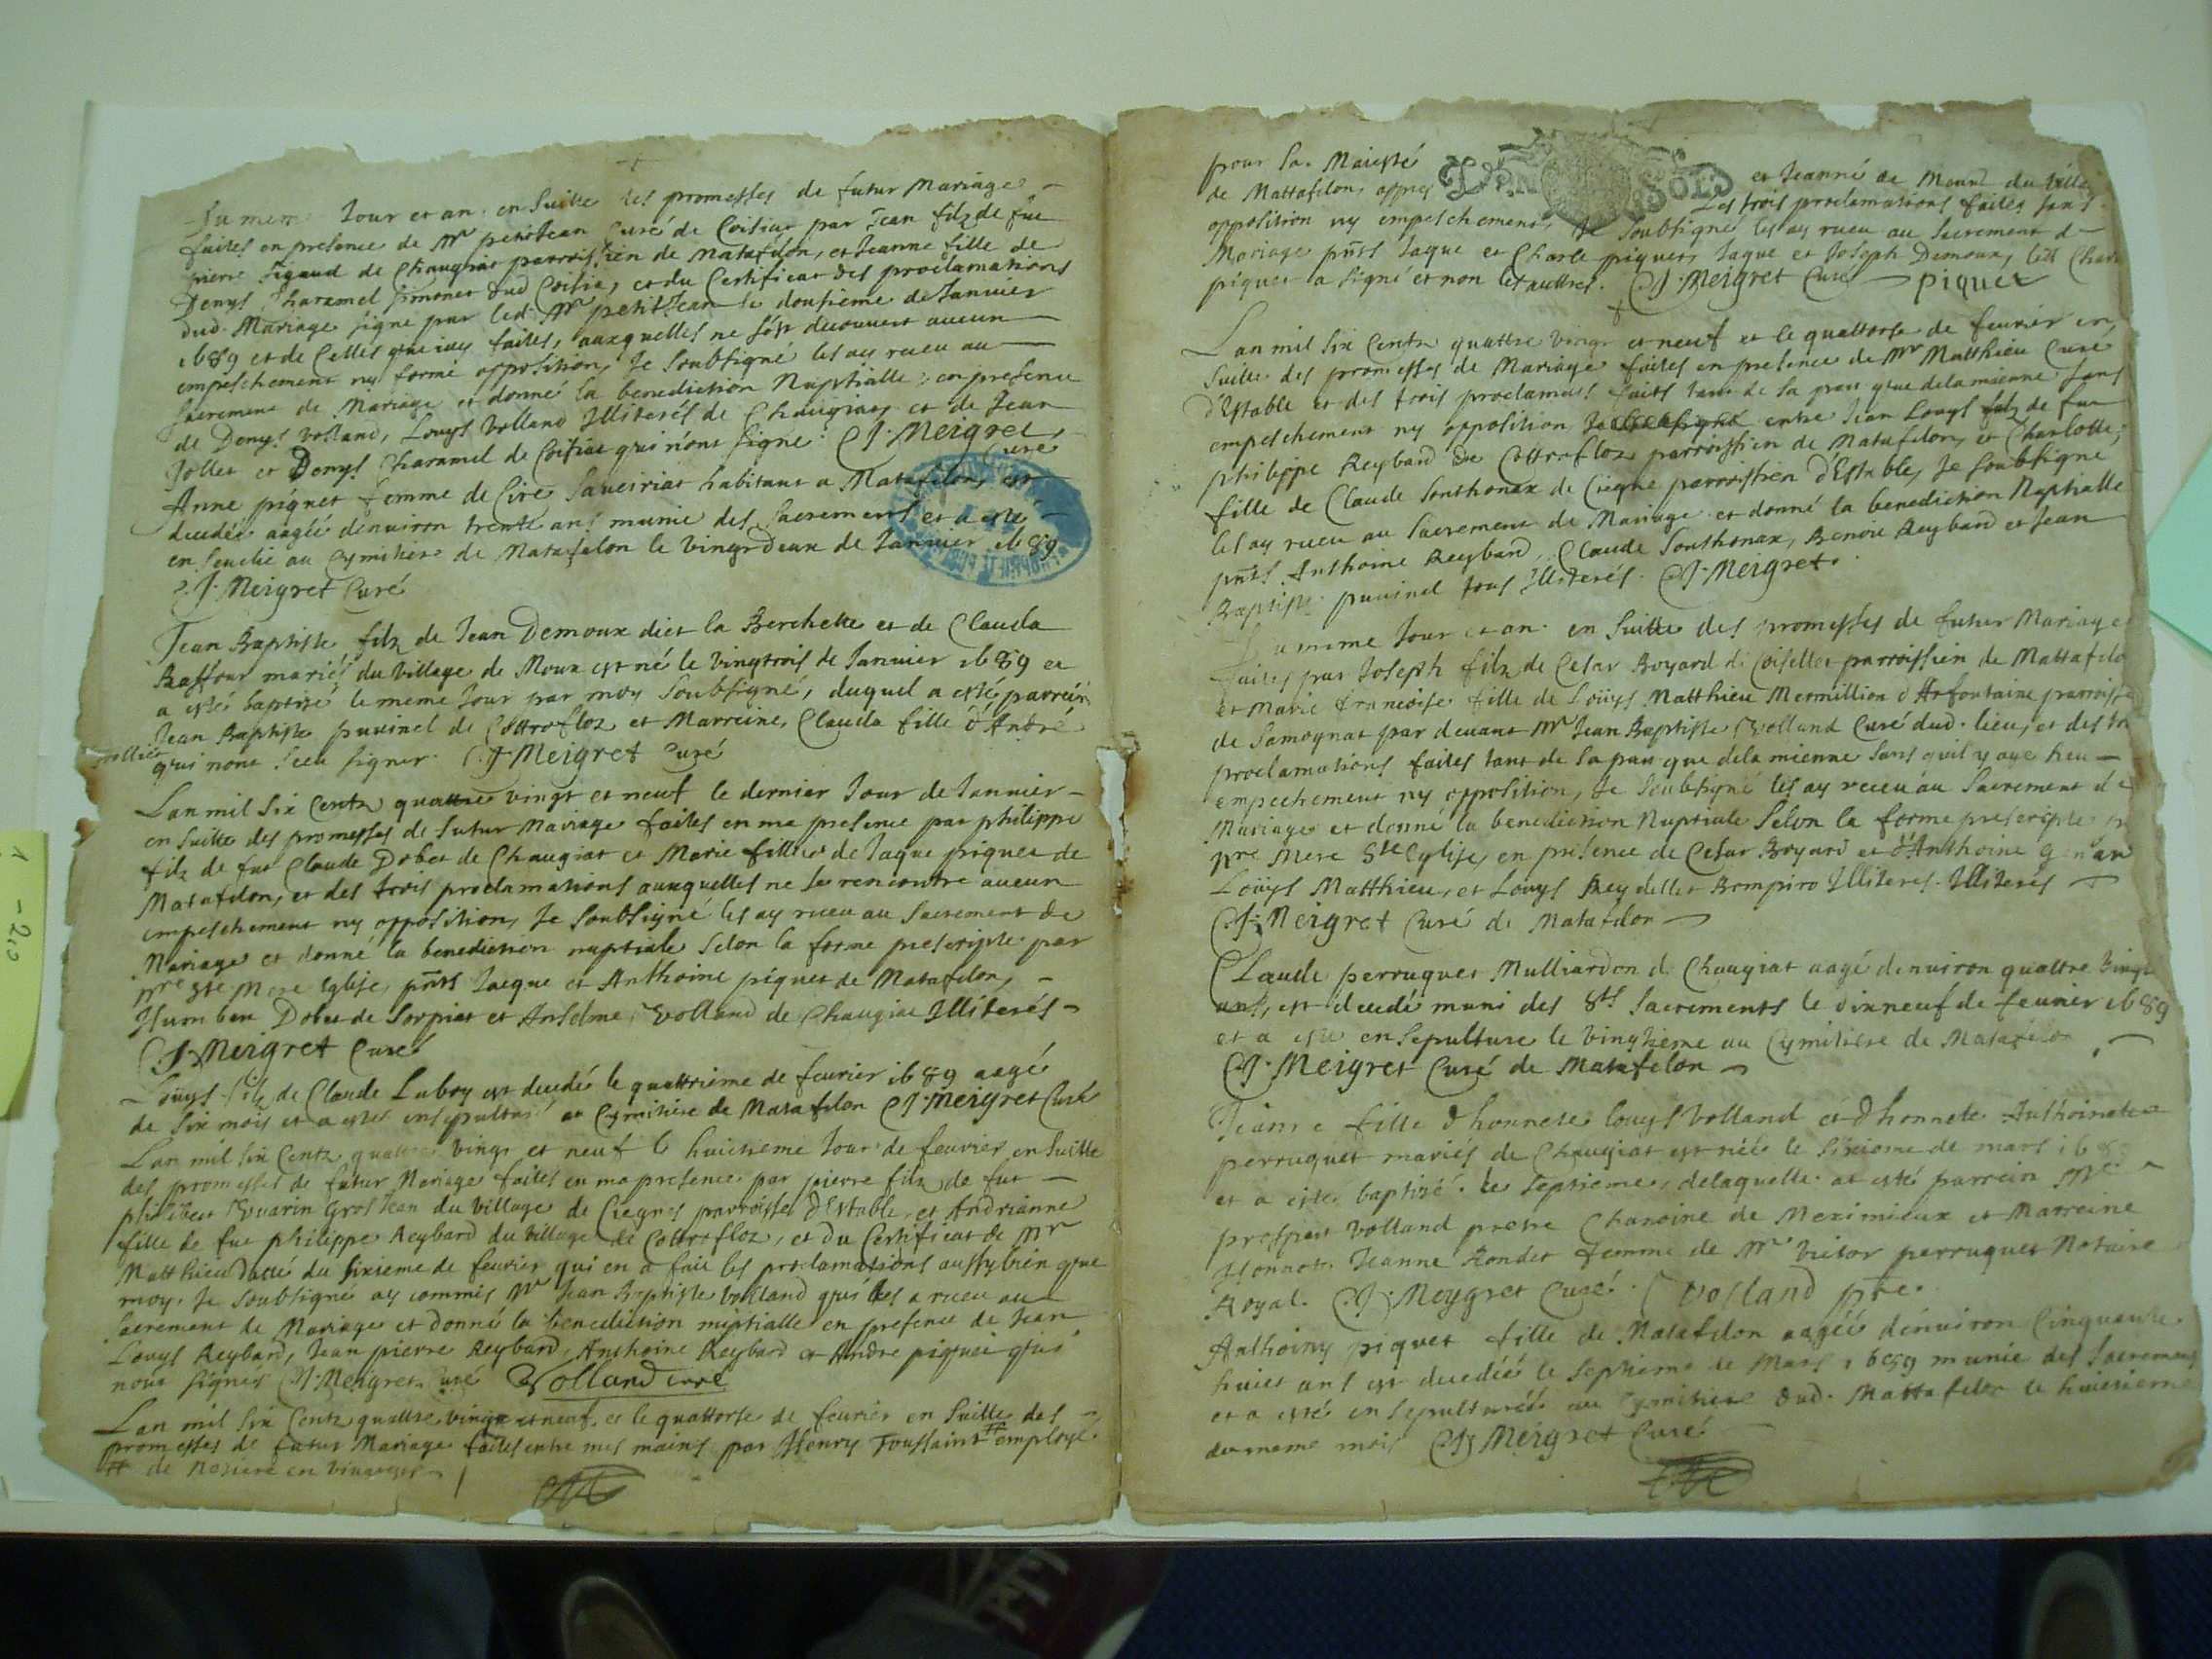 Du meme Jour et an en Suitte des promesses de futur Mariage
faites en presence de Mr petitJean Curé de Coisiat par Jean filz de fue
pierre Figaud de Chaugiat parroissien de Matafelon, et Jeanne fille de
Denys Charamel dud Coisia, et du Certificat des proclamations
dud. Mariage signe par led. Mr petitJean le dousieme de Janvier
1689 et de Celles que iay faites, auxquelles ne sest decouvert aucun
empeschement ny formé opposition, Je Soubsigné les ay receu au
Sacrement de Mariage et donné la benediction Nuptialle, en presence
de Denys Volland, Louys Volland Illiterés de Chaugiat, et de Jean
Jollet et Denys Charamel de Coisiat qui n'ont signe. J. Meigret
Curé
Anne piquet femme de Cire Saveiriat habitant a Matafelon, est
decedée aagée denuiron trente ans munie des Sacrements et a este
ensevelie au Cymitiere de Matafelon le vingtdeux de Janvier 1689
J. Meigret Curé
Jean Baptiste filz de Jean Demoux dict la Berchette et de Clauda
Raffour mariés du village de Moux est né le vingtrois de Janvier 1689 et
a esté baptizé le meme Jour par moy Soubsigné, duquel a esté parrein
Jean Baptiste puvinel de Cottrofloz et Marreine, Clauda fille d'André
qui nont sceu signer. J. Meigret Curé
Lan mil Six Centz quattre vingt et neuf le dernier Jour de Janvier
en suitte des promesses de futur Mariage faites en ma presence par philippe
filz de fut Claude Dobet de Chaugiat et Marie fille de Jaque piquet de
Matafelon, et des trois proclamations auxquelles ne se rencontre aucun
empeschement ny opposition, Je Soubsigné les ay receu au Sacrement de
Mariage et donné la benediction nuptiale Selon la forme prescripte par
nre Ste Mere Eglise, pnts Jacque et Anthoine piquet de Matafelon,
Humbert Dobet de Sorpiat et Anselme Volland de Chaugiat Illiterés
J. Meigret Curé
Louys filz de Claude Luboy est decedé le quattrieme de feurier 1689 aagé
de Six mois et a esté ensepulturé au Cymitiere de Matafelon J. Meigret Curé
Lan mil Six Centz quattre vingt et neuf le huictieme Jour de feurier en Suitte
des promesses de futur Mariage faites en ma presence par pierre filz de fut
philibert Guarin GrosJean du village de Ciegne parroisse d'Estable, et Andrianne
fille de fut philippe Reybard du village de Cottrofloz, et du Certificat de Mr
Matthieu datté du Sixieme de feurier qui en a fait les proclamations aussy bien que
moy. Je Soubsigné ay commis Mr Jean Baptiste Volland qui les a receu au
Sacrement de Mariage et donné la benediction nuptialle en presence de Jean
Louys Reybard, Jean pierre Reybard, Anthoine Reybard et Andre piquet qui
nont signes J. Meigret Curé Volland curé
Lan mil Six Centz quattre vingt et neuf, et le quattorse de feurier en Suitte des
promesses de futur Mariage faites entre mes mains par Henry Toussaint # employé
# de Noziere en vivarest
pour Sa. Maiesté
et Jeanne de Mouxd du Village
de Mattafelon, appres
Les trois proclamations faites sans
opposition ny empeschement, Je Soubsigne les ay receu au Sacrement de
Mariage pnts Jaque et Charle piquet, Jaque et Joseph Demoux, led Charle
piquet a signé et non les aultres. J. Meigret Curé piquet
Lan mil Six Centz quattre vingt et neuf et le quattorse de feurier en
Suitte des promesses de Mariage faites en presence de Mr Matthieu Curé
d'Estable et des trois proclamas faites tant de sa part que de la mienne sans
empeschement ny opposition entre Jean Louys filz de fut
philippe Reybard de Cottrofloz parroissien de Matafelon, et Charlotte,
fille de Claude Sonthonax de Ciegne parroissien d'Estable, Je Soubsigne
les ay receu au Sacrement de Mariage et donné la benediction Nuptialle
pnts Anthoine Reybard, Claude Sonthonax, Benoit Reybard et Jean
Baptiste puvinel tous Illiterés. J. Meigret.
Du mesme Jour et an en Suitte des promesses de futur Mariage
faites par Joseph filz de Cesar Boyard de Coiselles parroissien de Mattafelo
et Marie francoise fille de Louys Matthieu Mermillion d'Arfontaine parroisse
de Samognat par devant Mr Jean Baptiste Volland Curé dud. lieu, et des
proclamations faites tant de sa part que de la mienne sans quil y aye heu
empechement ny opposition, Je Soubsigné les ay receu au Sacrement de
Mariage et donné la benediction Nuptiale Selon la forme prescripte
nre Mere Ste Eglise, en presence de Cesar Boyard et d'Anthoine
Louys Matthieu, et Louys Reydellet Bompiro Illiteres. Illiterés
J. Meigret Curé de Matafelon
Claude perruquet Mulliardon de Chaugiat aagé denuiron quattre vingt
ans, est decedé muni des Sts Sacrements le dixneuf de feurier 1689
et a esté ensepulture le vingtieme au Cymitiere de Matafelon
J. Meigret Curé de Matafelon
Jeanne fille d'honneste Louys Volland et d'honneste Anthoinete
perruquet mariés de Chaugiat est née le Sixiome de mars 168
et a esté baptizé le Septieme, delaquelle at esté parrein Mre
prosper Volland prestre Chanoine de Meximieux et Marreine
Honnor. Jeanne Rondet femme de Mr Victor perruquet Notaire
Royal. J. Meygret Curé. Volland pre.
Anthoiny piquet fille de Matafelon aagéé denuiron Cinquante
huict ans est decedéé le Septieme de Mars 1689 munie des Sacremens
et a esté ensepulturéé au Cymitiere dud. Mattafelon le huictieme
du meme mois J. Meigret Curé